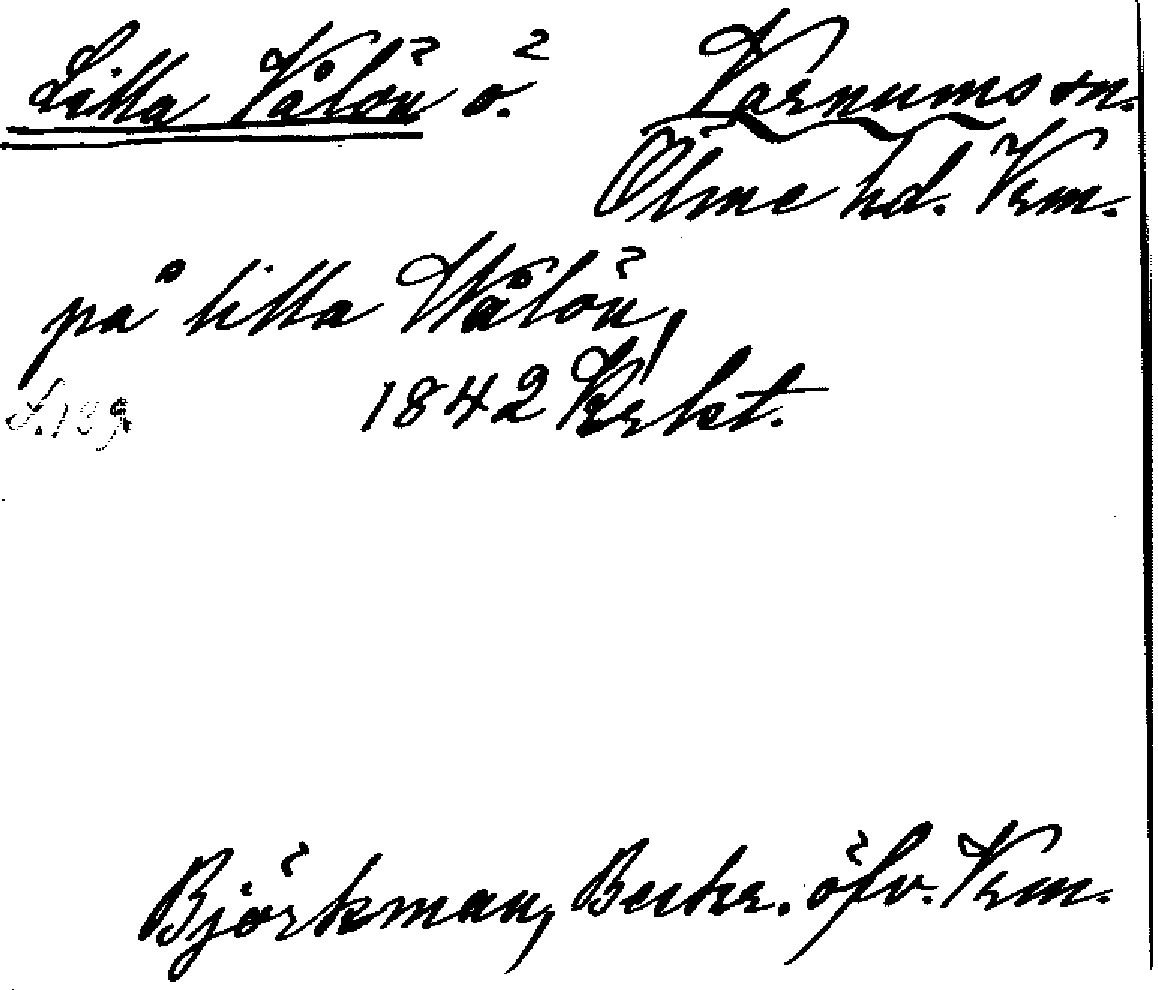 Lilla Vålön ö. Varnums sn.
Ölme hd. Vrm.
på lilla Wålön,
S. 199 1842
Björkman, Beskr. öfv. Vrm.